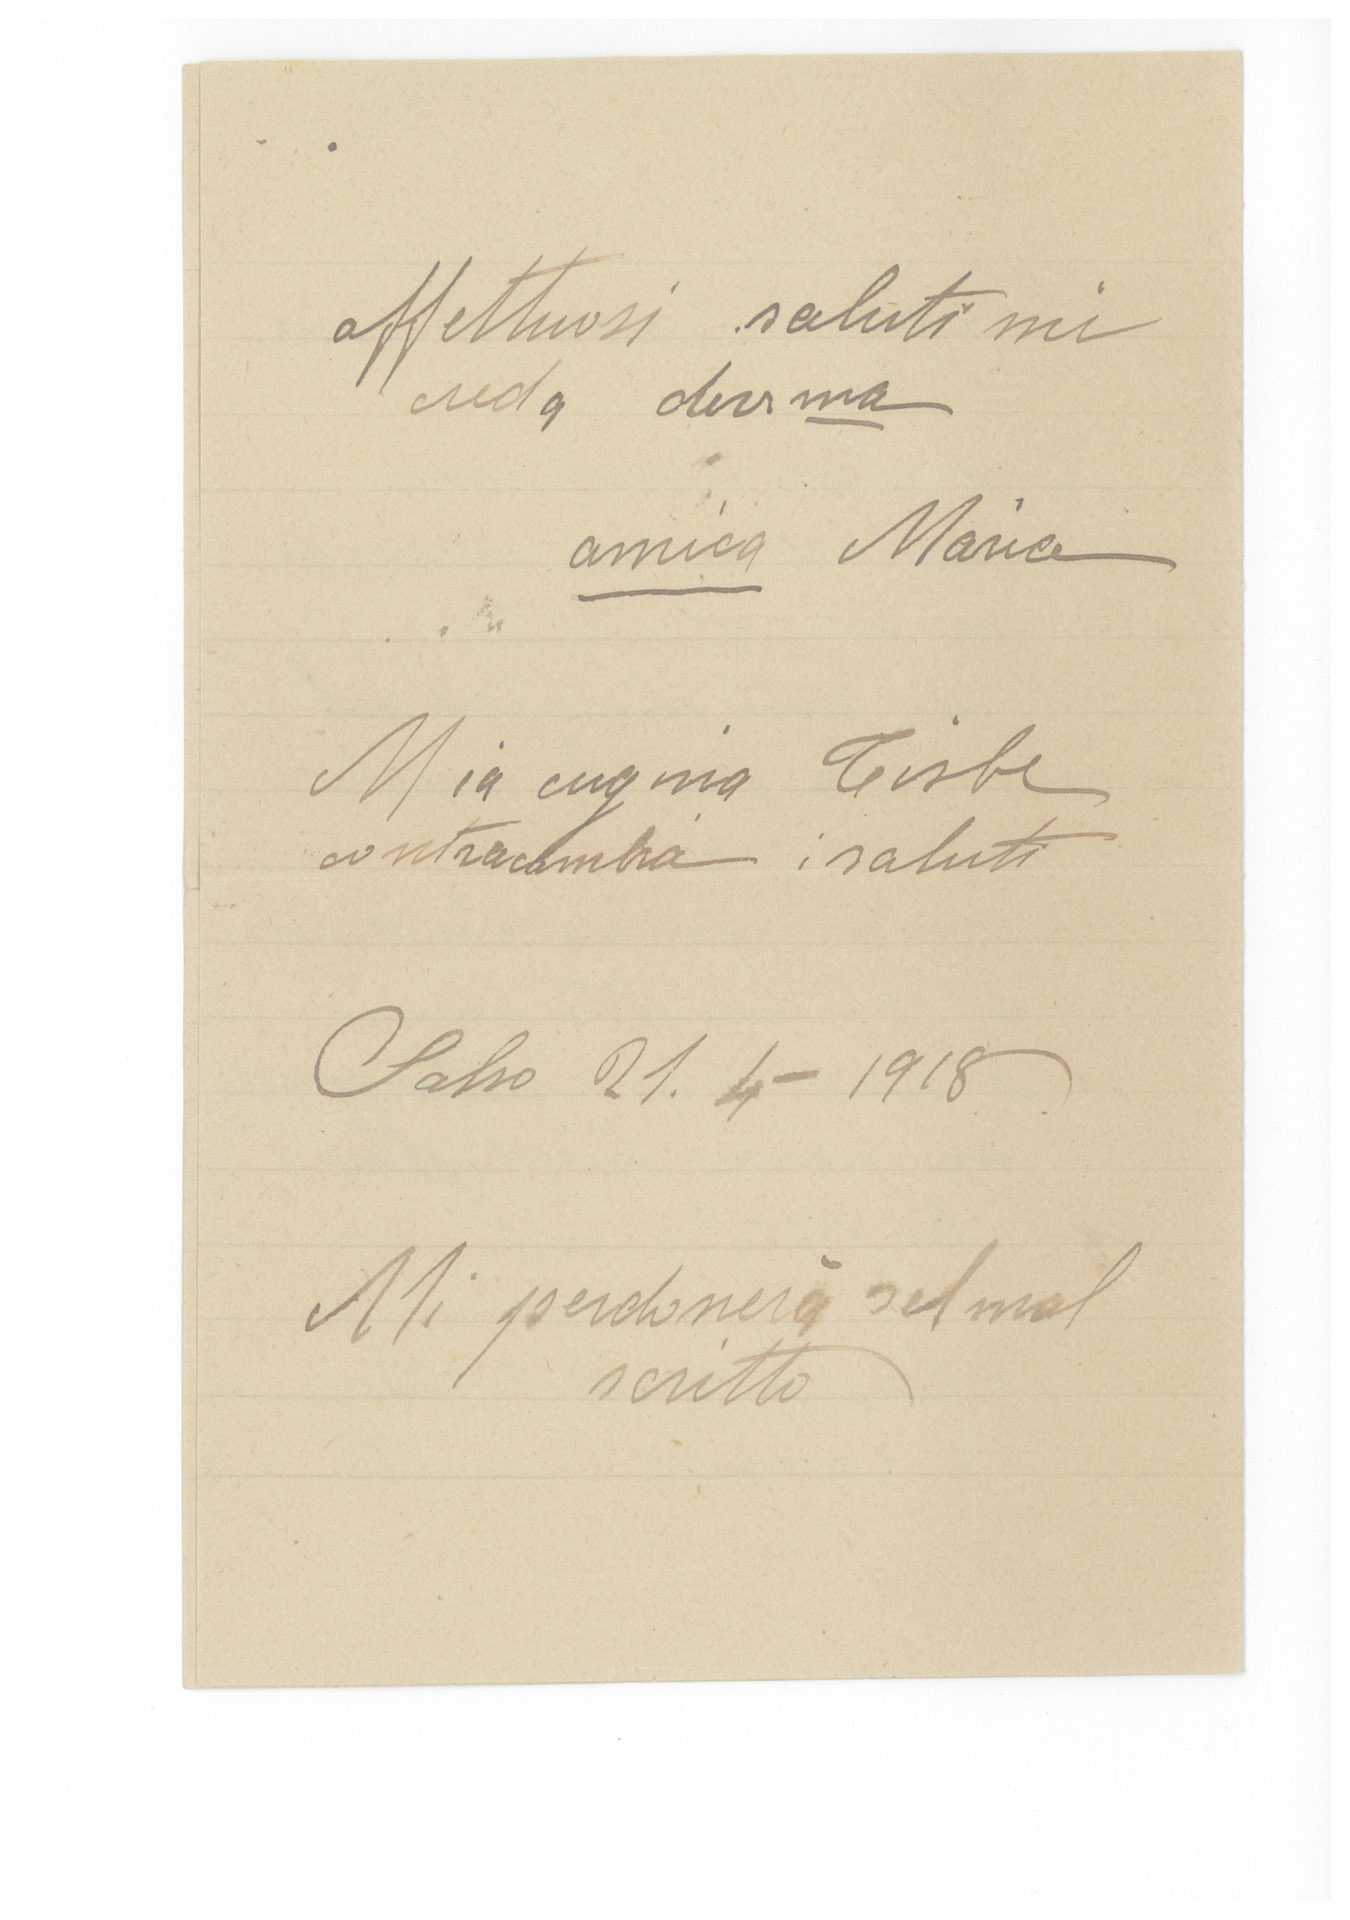 affettuosi saluti mi
creda devma
amica Maria
Mia cugina Tisbe
contracambia i saluti
Salso 21. 4 - 1918
Mi perdonerà del mal
scritto